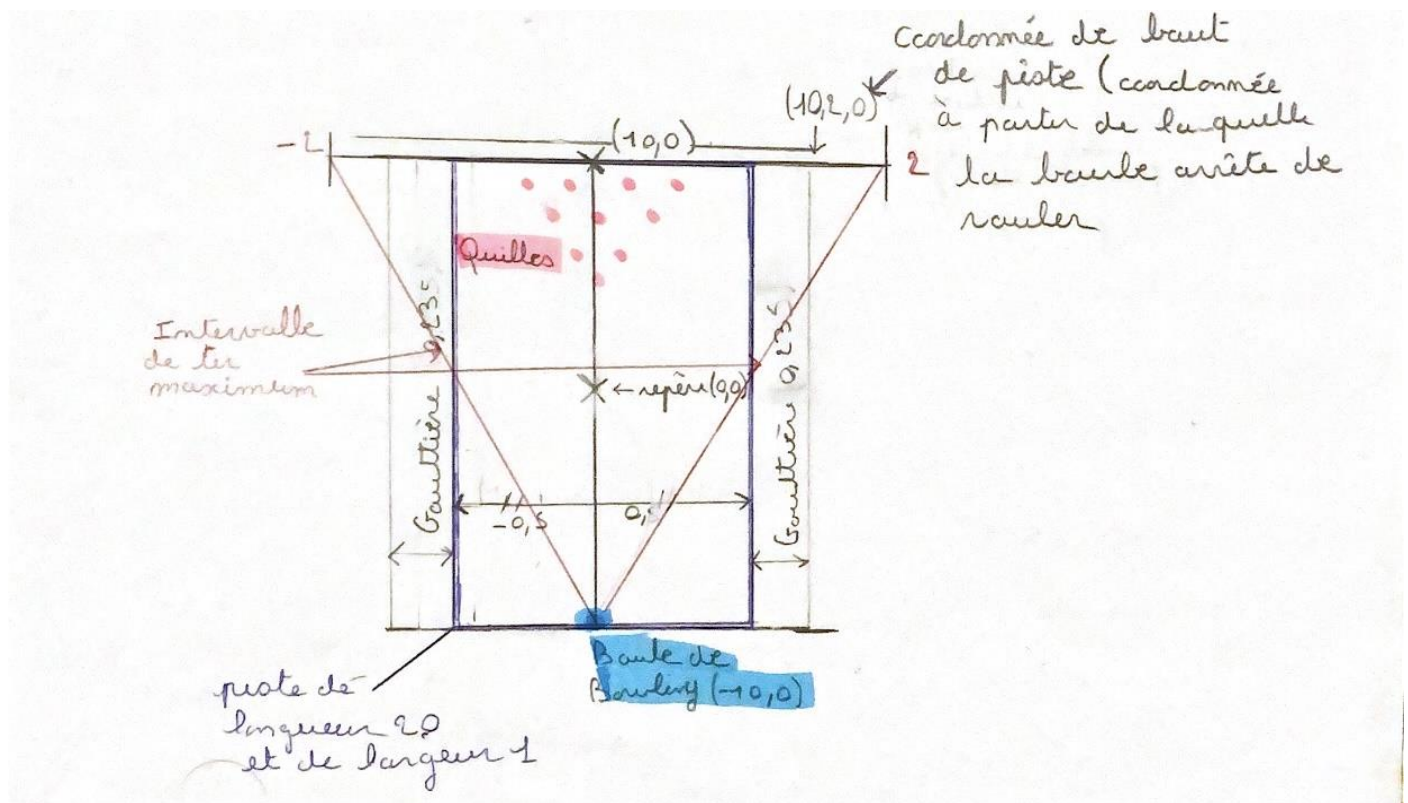 Coordonnée de bout
de piste (coordonnée
à partir de laquelle
la boule arrête de
rouler
(10,2,0)
-2
(10,0)
2
Quilles
Intervalle
de tir
maximum
0,235
Gouttière
← repère (0,0)
Gouttière 0,235
-0,5
0,5
Boule de
Bowling (-10,0)
piste de
longueur 20
et de largeur 1